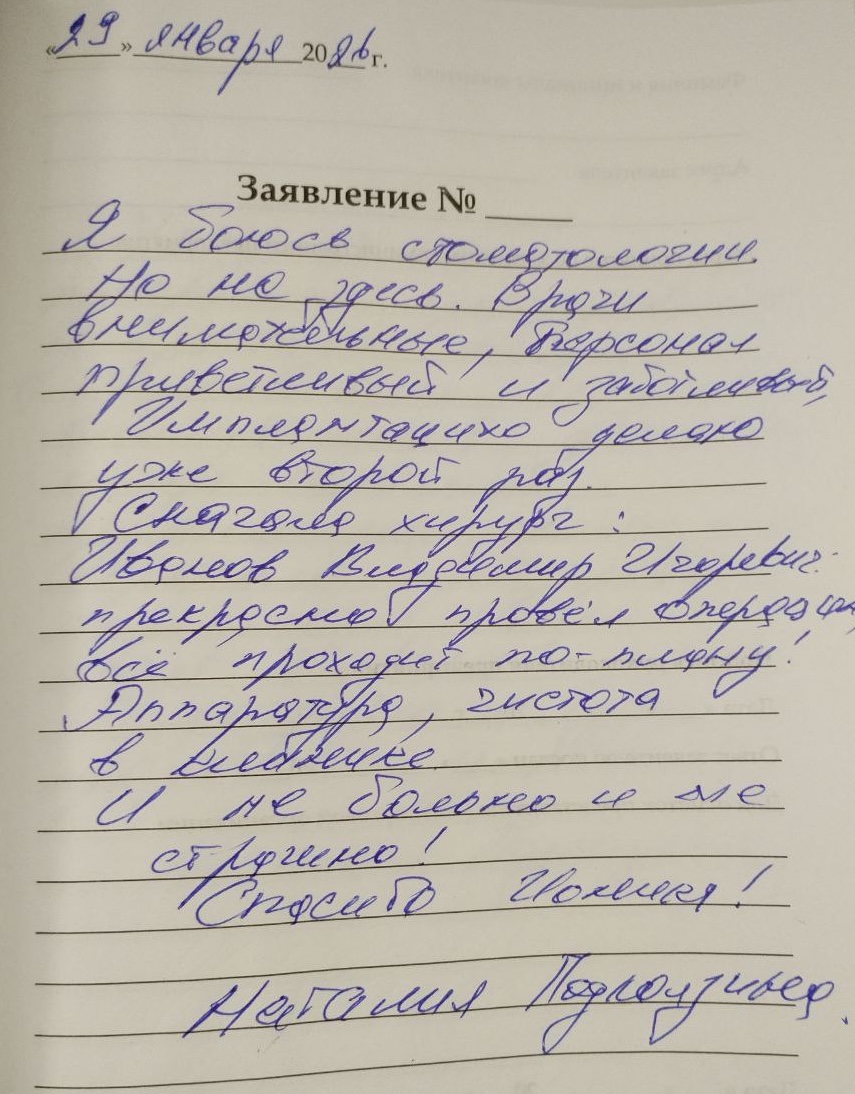 «29» января 2026 г.
Заявление № ____
Я боюсь стоматологии.
Но не здесь. Врачи
внимательные, персонал
приветливый и заботливый,
Имплантацию делаю
уже второй раз.
Сначала хирург:
Иванов Владимир Игоревич.
прекрасно провёл операцию,
всё проходит по-плану!
Аппаратура, чистота
в клинике.
И не больно и не
страшно!
Спасибо !
Наталия